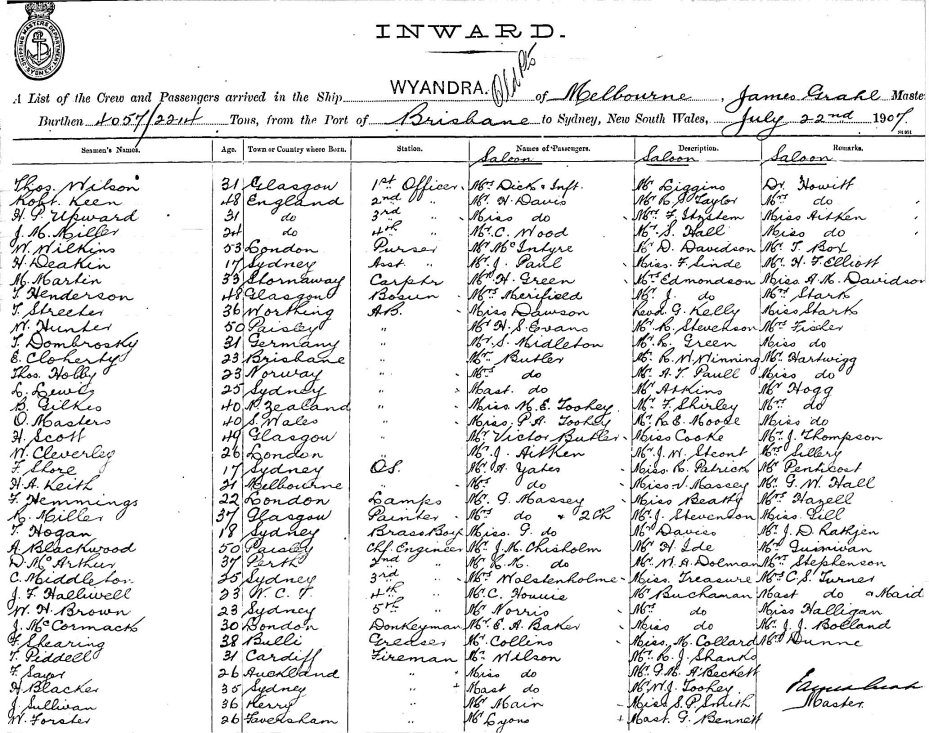 SHIPPING MASTERS DEPARTMENT SYDNEY
INWARD.
WYANDRA.
A List of the Crew and Passengers arrived in the Ship WYANDRA. of Melbourne, James Grahl Master
Burthen 4057/2214 Tons, from the Port of Brisbane to Sydney, New South Wales, July 22nd 1907
Seamen's Names. Age. Town or Country where Born. Station. Names of Passengers. Description. Remarks.
Saloon Saloon Saloon
Thos. Wilson 31 Glasgow 1st Officer Mrs Dick & Inft. Mr Liggins Dr. Howitt
Robt. Keen 48 England 2nd " Mr. H. Davis Mr R. S. Taylor Mrs do
H. P. Upward 31 do 3rd " Miss do Mrs F. Miss Aitken
J. M. Miller 24 do 4th " Mr. C. Wood Mr. S. Hall Miss do
W. Wilkins 53 London Purser Mr McIntyre Mr D. Davidson Mr T. Box
H. Deakin 17 Sydney Asst. " Mr. J. Paul Miss. F. Linde Mr. H. F. Elliott
M. Martin 33 Stornaway Carptr Mr H. Green Mrs Edmondson Miss A. M. Davidson
T. Henderson 48 Glasgow Bosun Mrs Merifield Mr J. do Mrs Stark
T. Streeter 36 Worthing A.B. Miss Dawson Revd. G. Kelly Miss Stark
W. Hunter 50 Paisley " Mr H. S. Evans Mr. R. Stevenson Mrs Fisher
T. Dombrosky 31 Germany " Mr. S. Midleton Mr. R. Green Miss do
E. Cloherty 23 Brisbane " Mr. Butler Mr. R. W. Winning Mr. Hartwigg
Thos. Holly 23 Norway " Mrs do Mr. A. T. Paull Miss do
L. Lewis 25 Sydney " Mast. do Mr Atkins Mr Hogg
B. Gilkes 40 N. Zealand " Miss M. E. Toohey Mr. F. Shirley Mrs do
O. Masters 40 S. Wales " Miss. P. A. Toohey Mr. R. E. Moore Miss do
H. Scott 49 Glasgow " Mr. Victor Butler Miss Cooke Mr. J. Thompson
W. Cleverley 26 London " Mr. J. Aitken Mr. J. W. Mrs Sillery
F. Shore 17 Sydney O.S. Mr A. Yates Miss. R. Patrick Mr Penticost
H. A. Keith 21 Melbourne " Mrs do Miss V. Massey Mr. G. W. Hall
F. Hemmings 22 London Lamps Mr. G. Massey Miss Beatty Mrs Hazell
R. Miller 37 Glasgow Painter Mrs do & 2 Ch Mr. J. Stevenson Miss. Gill
T. Hogan 18 Sydney Brass Boy Miss. G. do Mr Davies Mr. J. D. Rathjen
A. Blackwood 50 Paisley Chf. Engineer Mr. J. M. Chisholm Mr H. Ide Mrs
D. McArthur 37 Perth 2nd " Mr. R. M. do Mr. W. A. Dolman Mrs Stephenson
C. Middleton 25 Sydney 3rd " Mrs Wolstenholme Miss. Treasure Mrs C. S. Turner
J. F. Halliwell 23 W. C. F. 4th " Mr. C. Mr Buchaman Mast do & Maid
W. H. Brown 23 Sydney 5th " Mr. Norris Mrs do Miss Halligan
J. McCormack 30 London Donkeyman Mr. E. A. Baker Miss do Mr. J. J. Bolland
F. Shearing 38 Bulli Greaser Mr. Collins Miss. M. Collard Mrs Dunne
T. Piddell 31 Cardiff Fireman Mr. Wilson Mr. R. J. Shanks
F. Sayer 26 Auckland " Miss do Mr. G. M. A'Beckett
H. Blacker 35 Sydney " Mast do Mr W. J. Toohey
J. Sullivan 36 Kerry " Mr Main Miss S. P. Smith
W. Forster 26 Faversham " Mr Lyons Mast. G. Bennett
Master.